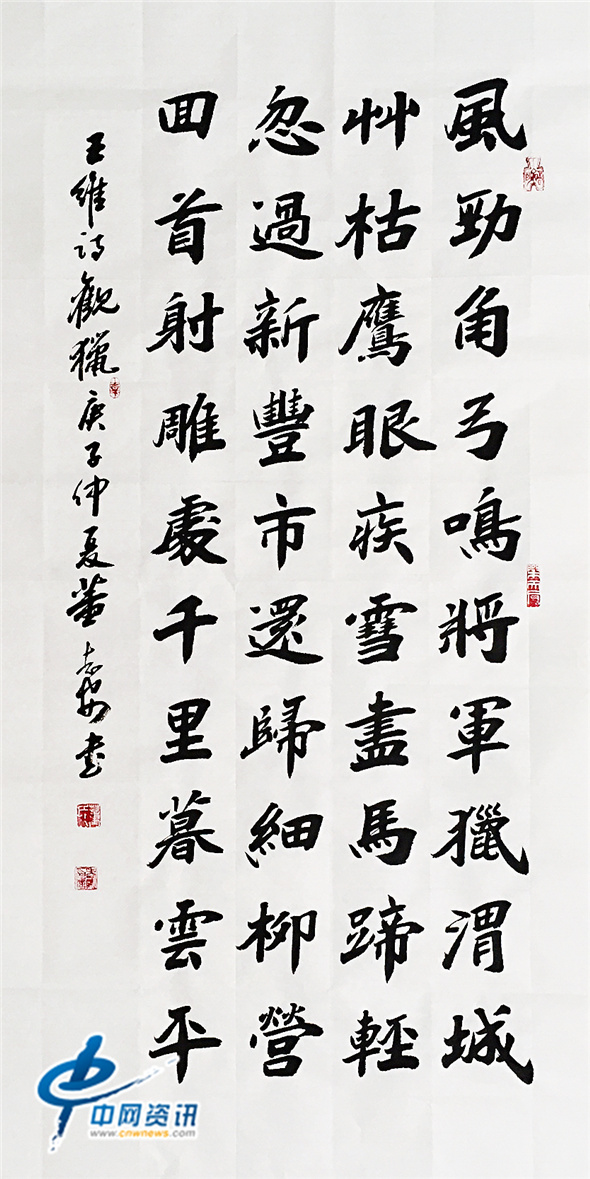 風勁角弓鳴將軍獵渭城
艸枯鷹眼疾雪盡馬蹄輕
忽過新豐市還歸細柳營
回首射雕處千里暮雲平
王維詩觀獵庚子仲夏董志書
中网资讯
www.cnwnews.com